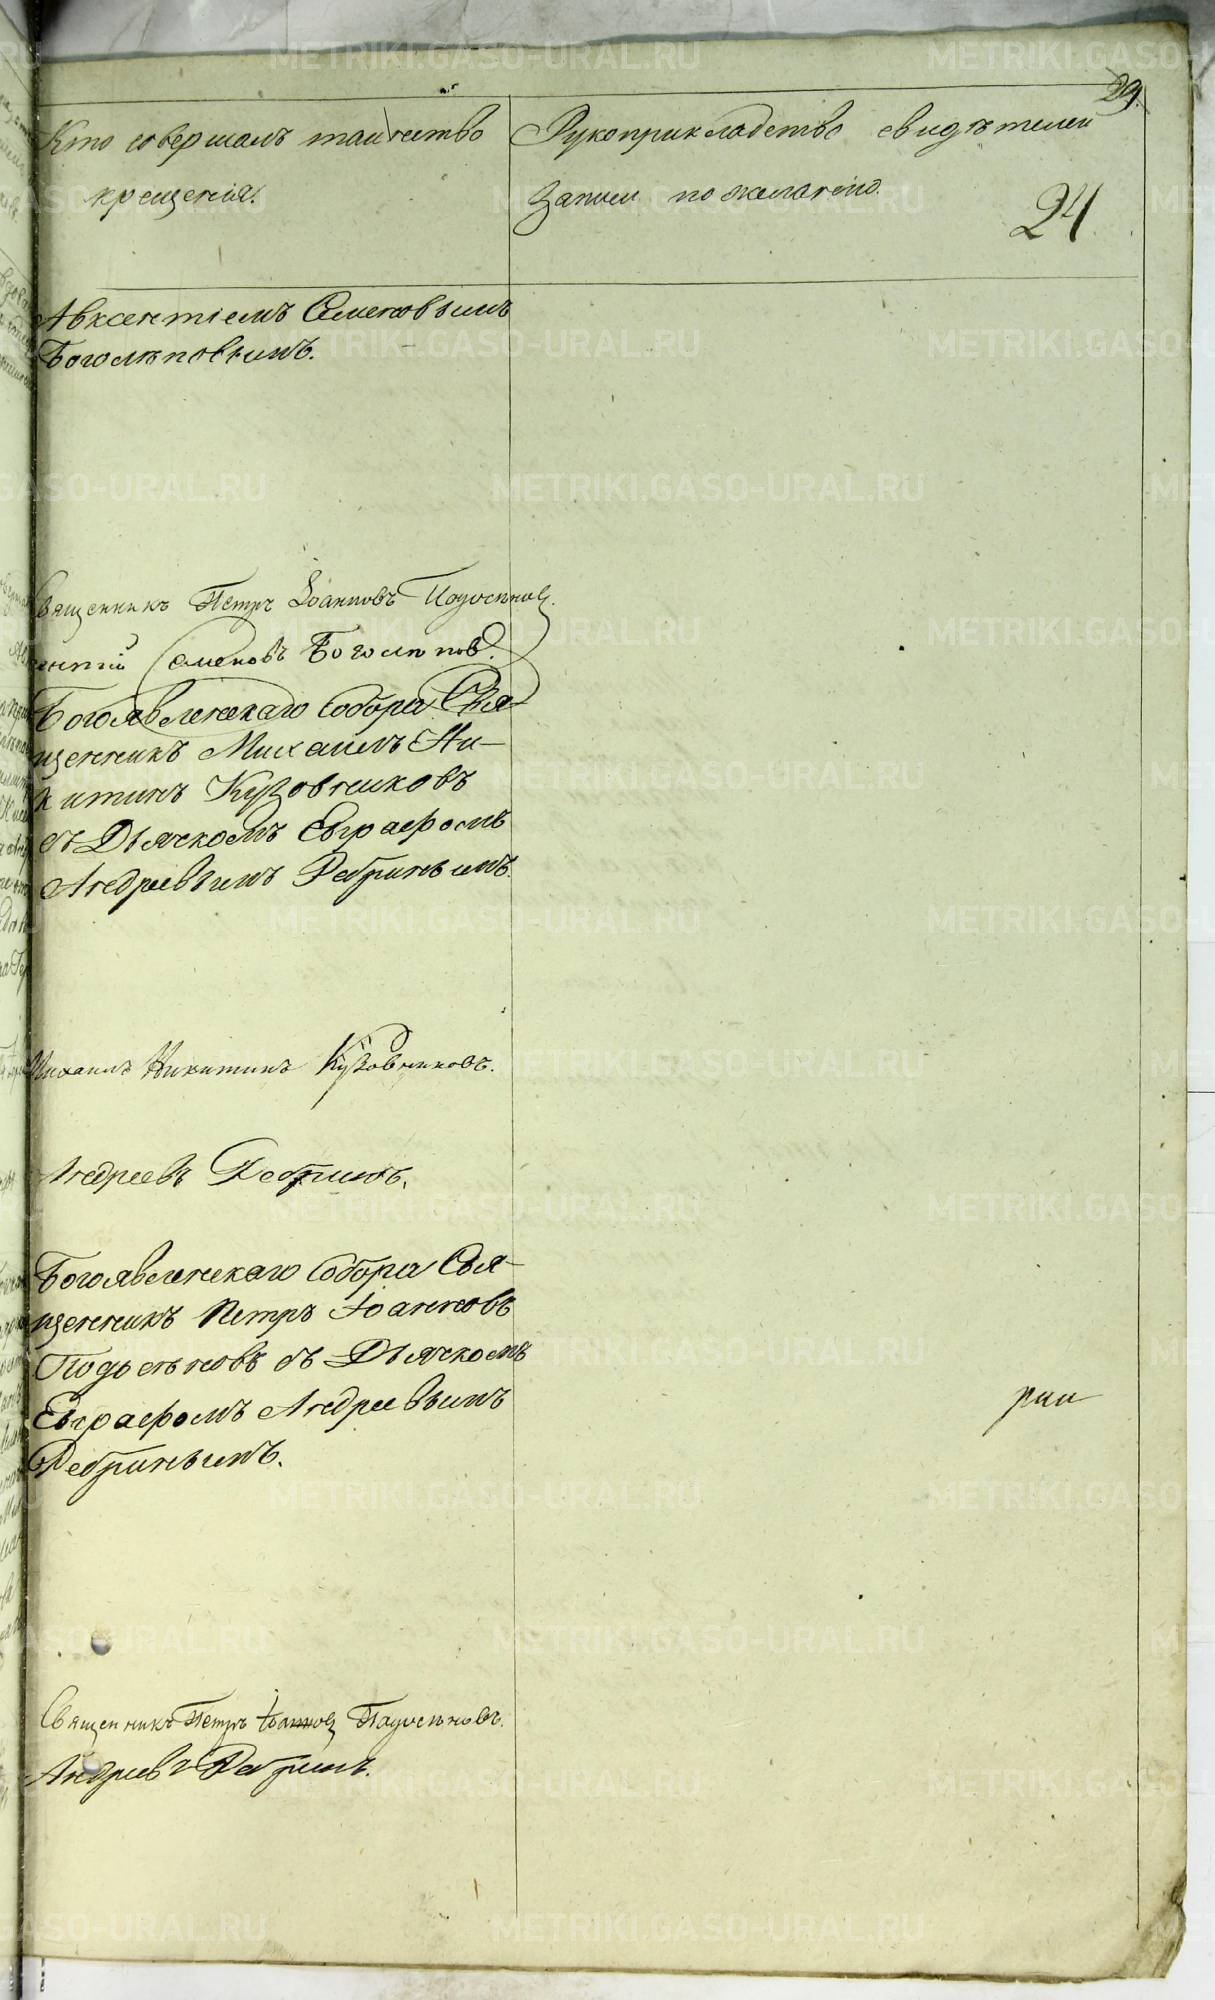 29.
Кто совершалъ таинство
крещенія.
Рукоприкладство свидѣтелей
записи по желанію.
24
Авксентіемъ Семеновымъ
Боголѣповымъ.
Священникъ Петръ Іоанновъ Подосеновъ.
Семеновъ Боголѣповъ.
Богоявленскаго Собора Свя-
щенникъ Михаилъ Ни-
китинъ Кузовниковъ
съ Дьячкомъ Евграфомъ
Андреевымъ Ребринымъ.
Михаилъ Никитинъ Кузовниковъ.
Андреевъ Ребринъ.
Богоявленскаго Собора Свя-
щенникъ Петръ Іоанновъ
Подосеновъ съ Дьячкомъ
Евграфомъ Андреевымъ
Ребринымъ.
рии
Священникъ Петръ Іоанновъ Подосеновъ.
Андреевъ Ребринъ.
METRIKI.GASO-URAL.RU